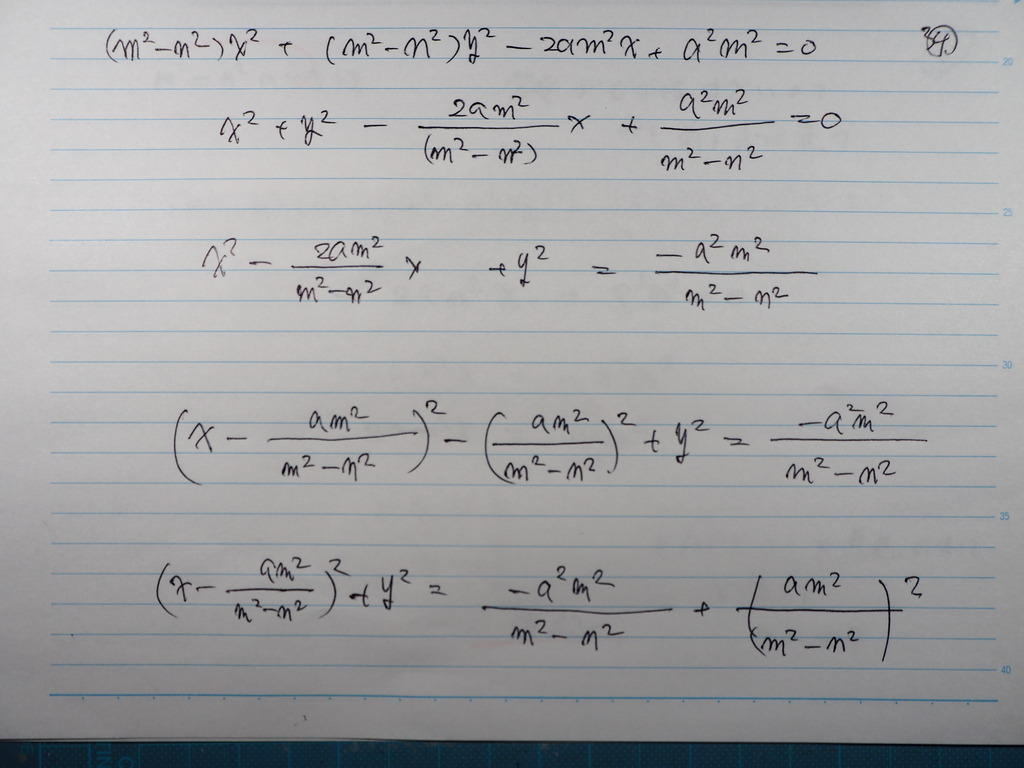 (m²-n²)x² + (m²-n²)y² - 2am²x + a²m² = 0
20
x² + y² - 2am²/(m²-n²) x + a²m²/m²-n² = 0
25
x² - 2am²/m²-n² x + y² = -a²m²/m²-n²
30
(x - am²/m²-n²)² - (am²/m²-n²)² + y² = -a²m²/m²-n²
35
(x - am²/m²-n²)² + y² = -a²m²/m²-n² + (am²/m²-n²)²
40